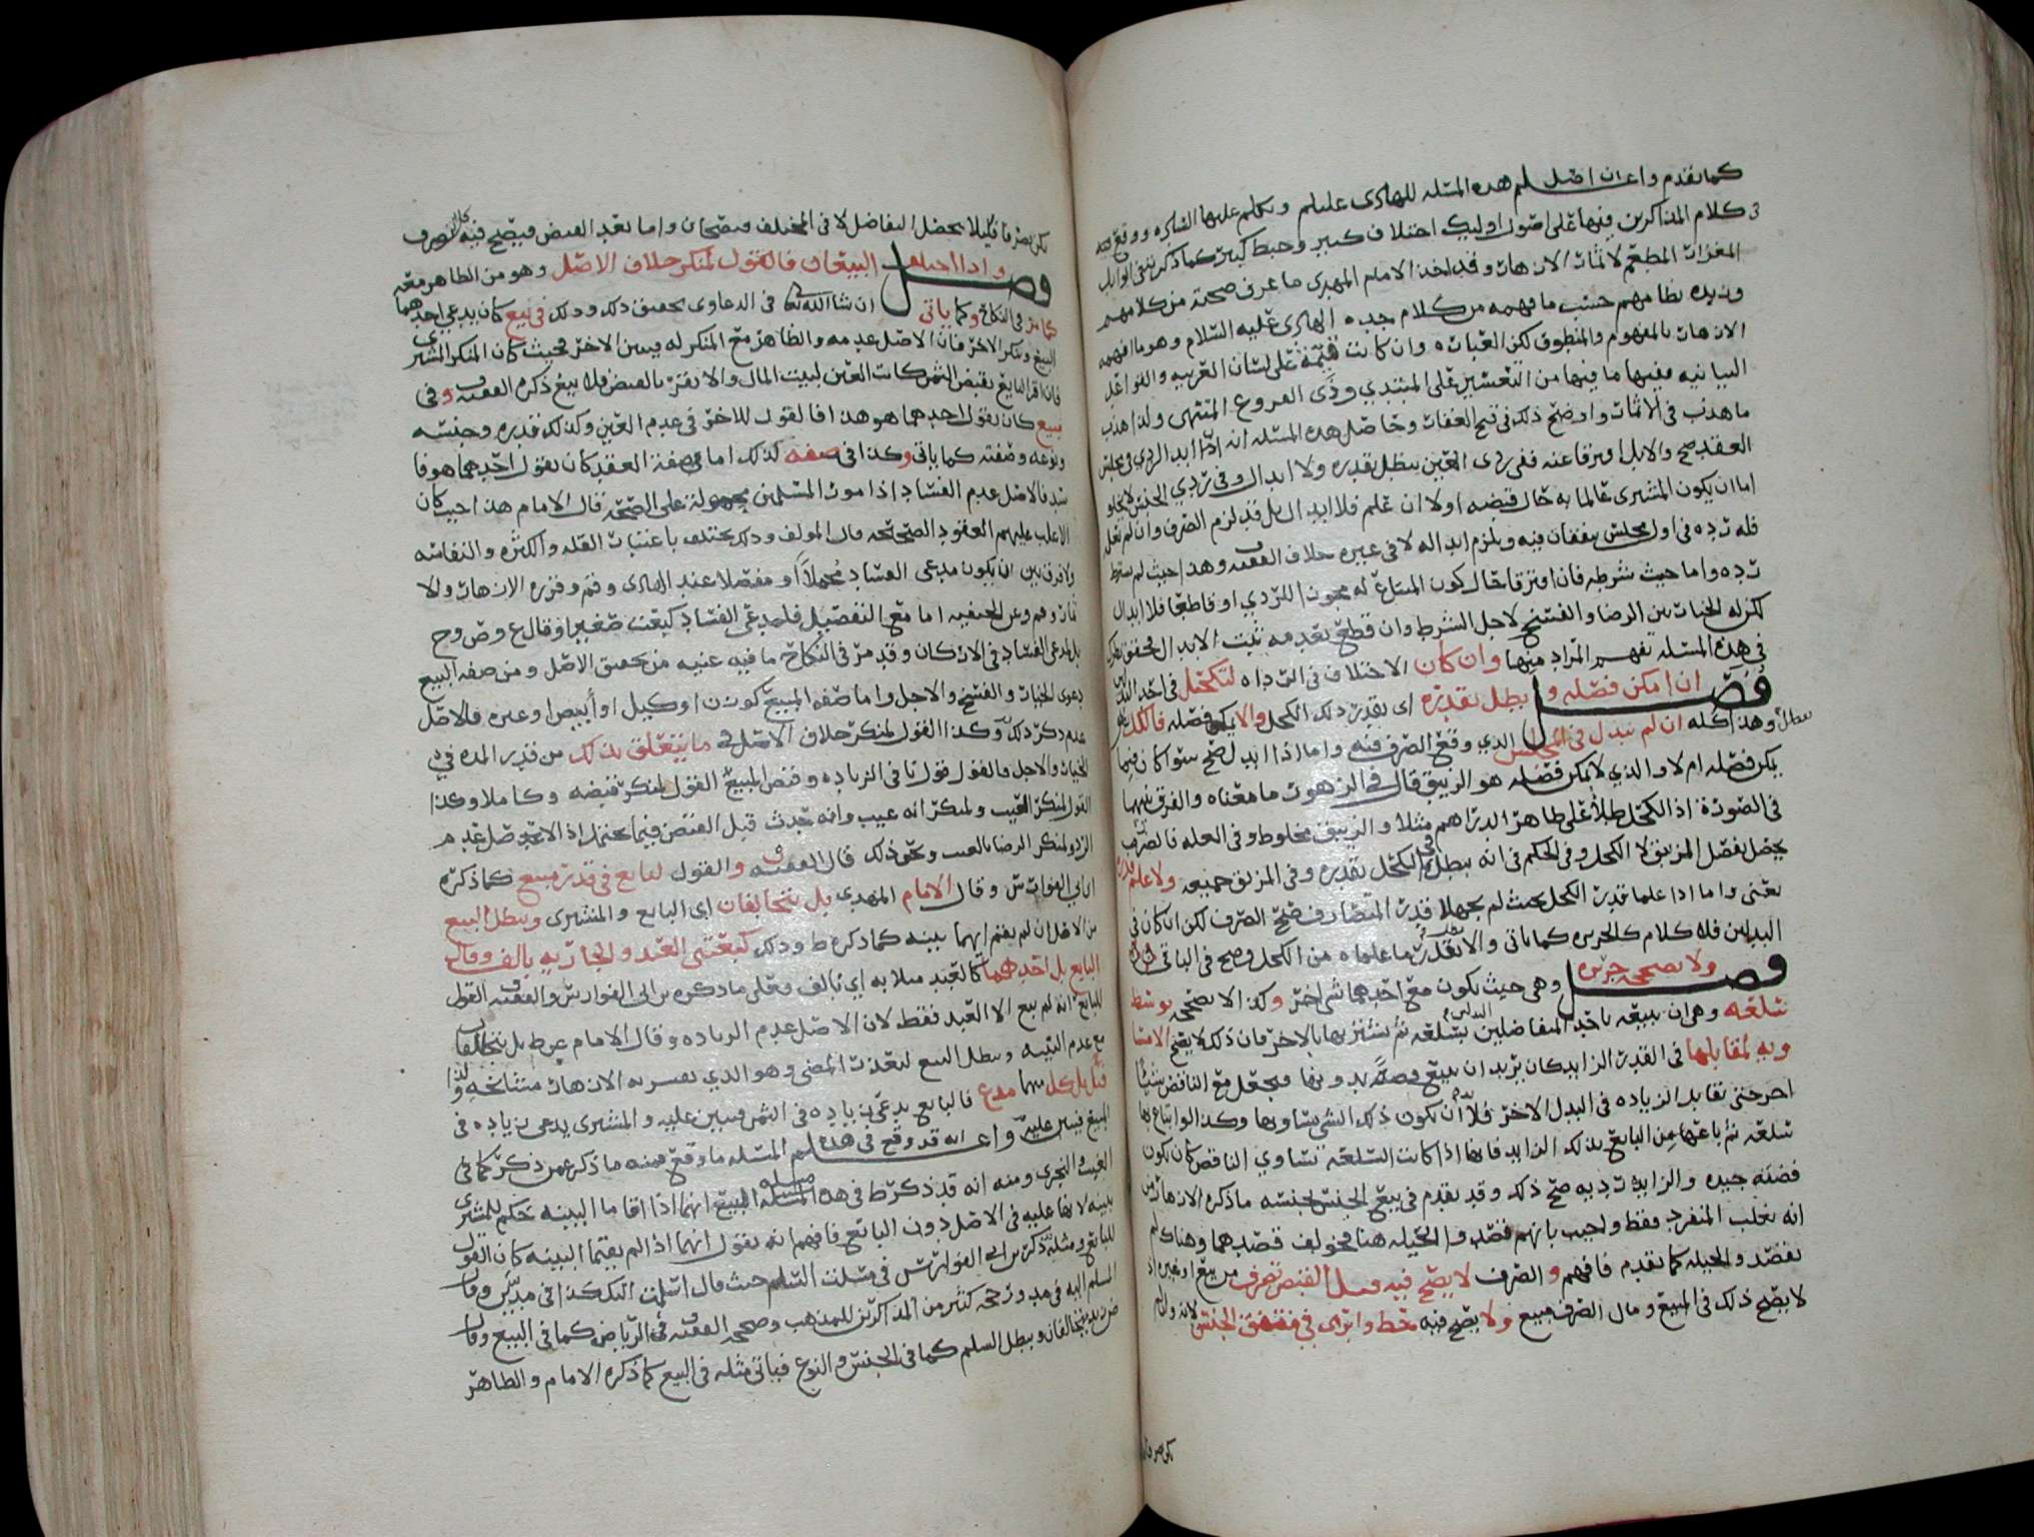 كما تقدم واعلم ان اصل هذه المسئله للهادى عليلم وتكلم عليها القاسم ووقع
كلام المذاكرين فيها على اصول اوليك اختلاف كبير وخبط كثير كما ذكر
وقد اخذ الامام المهدي ما عرف صحته من كلامهم
حسب ما فهمه من كلام جده الهادى عليه السلام وهو ما افهمه
الازهار بالمفهوم والمنطوق لكن العباره وان كانت على لسان العربيه والقواعد
البيانيه ففيها ما فيها من التعسير على المبتدي وذى الفروع المنتهى ولذا هذب
ما هذب في الاثمار واوضح ذلك في فتح الغفار وحاصل هذه المسئله انه اذا ابدل الردي في مجلس
العقد صح والا بل افترقا عنه ففى ردى العين يبطل بقدره ولا ابدال وفى ردي الجنس لا يخلو
اما ان يكون المشترى عالما به حال قبضه اولا ان علم فلا ابدال بل قد لزم الصرف وان لم يعلم
فله رده فى اول مجلس يتفقان فيه ويلزم ابداله لا فى غيره خلاف الفقيه وهذا حيث لم يشترط
رده واما حيث شرطه فان افترقا حال كون المبتاع له مجوزا للردي او قاطعا فلا ابدال
لكن له الخيار بين الرضا والفسخ لاجل الشرط وان قطع بعدمه ثبت الابدال
فى هذه المسئله تفهم المراد منها وان كان الاختلاف فى الرداه لتكحل فى احد البدلين
فصل ان امكن فصله و بطل بقدره اى بقدر ذلك الكحل والا يمكن فصله فالكل
وهذا كله ان لم يبدل فى المجلس الذي وقع الصرف فيه واما اذا ابدل صح سوا كان فيما
يمكن فصله ام لا والذي لا يمكن فصله هو الزيبق قال فى الزهور ما معناه والفرق بينهما
فى الصورة اذ الكحل طلا على ظاهر الدراهم مثلا والزيبق مخلوط وفى العله
يحصل بفصل المزيبق لا الكحل وفى الحكم فى انه يبطل فى الكحل بقدره وفى المزيبق جميعه ولا علم قدره
يعنى واما اذا علما قدر الكحل بحيث لم يجهلا قدر المتصارف صح الصرف لكن ان كان فى
البدلين فلا كلام كالجريره كما ياتى والا بقدر ما علماه من الكحل وصح فى الباقى
فصل ولا يصححه جريره وهى حيث يكون مع احدهما شى اخر وكذا لا يصححه توسط
سلعه وهى ان يبيعه باحد المتفاضلين سلعه ثم يشتريها بالاخر فان ذلك لا يصح الا مسا
ويه لمقابلها فى القدر الزايد كان يريد ان يبيع فضه بدونها فيجعل مع الناقص شيئا
اخر حتى تقابل الزياده فى البدل الاخر فلا بد ان يكون ذلك الشى يساويها وكذا لو ابتاع بها
سلعه ثم باعها من البايع بذلك الزايد فانها اذا كانت السلعه تساوي الناقص كان يكون
فضه جيده والزايد رديه صح ذلك وقد تقدم فى بيع الجنس بجنسه ما ذكره الازهار من
انه يغلب المنفرد فقط واجيب بانهم فصلوا والحيله هنا قصدهما وهناك لم
نقصد والحيله كما تقدم فافهم والصرف لا يصح فيه قبل القبض تصرف من بيع او غيره اذ
لا يصح ذلك فى المبيع ومال الصرف مبيع ولا يصح فيه حط وابرى فى متفق الجنس لانه
يكن صرفا
يكن صرفا قليلا يحصل التفاضل لا فى المختلف فيصحان واما بعد القبض فيصح فيه كل تصرف
فصل واذا اختلف البيعان فالقول لمنكر خلاف الاصل وهو من الظاهر معه
كما مر فى النكاح وكما ياتى ان شا الله تعالى فى الدعاوى تحقيق ذلك وذلك فى بيع كان يدعي احدهما
البيع وينكر الاخر فان الاصل عدمه والظاهر مع المنكر له ويبين الاخر فحيث كان المنكر المشترى
فان اقر البايع بقبض الثمن كانت العين لبيت المال والا يقر بالقبض فلا بيع ذكره الفقيه وفى
مبيع كان يقول احدهما هو هذا فالقول للاخر فى عدم العين وكذلك قدره وجنسه
ونوعه وصفته كما ياتى وكذا فى صفه كذلك اما صفة العقد كان يقول احدهما هو فا
سد فالاصل عدم الفساد اذ امور المسلمين محموله على الصحه قال الامام هذا حيث كان
الاغلب عليهم العقود الصحيحه قال المولف وذلك يختلف باعتبار القله والكثره والنفاسه
ولا فرق بين ان يكون مدعى الفساد مجملا او مفصلا عند الهادى و م وقرره الازهار والا
ثمار وهم وعن الحنفيه اما مع التفصيل فلمدعى الفساد كبعت صغيرا وقال ع وص وح
بل لمدعى الفساد فى الاركان وقد مر فى النكاح ما فيه غنيه من تحقيق الاصل ومن صفه البيع
دعوى الخيار والفسخ والاجل واما صفه المبيع كوزن او كيل او ابيض او غيره فالاصل
عدم ذكر ذلك وكذا القول لمنكر خلاف الاصل فى ما يتعلق بذلك من قدر المده فى
الخيار والاجل فالقول قول نافى الزياده وقبض المبيع القول لمنكر قبضه وكاملا وكذا
القول لمنكر العيب ولمنكر انه عيب وانه حدث قبل القبض فيما يحتمل اذ الاصل عدم
الرد ولمنكر الرضا بالعيب ونحو ذلك قال الفقيه والقول لبايع فى قدر مبيع كما ذكره
ابن ابى الفوارس وقال الامام المهدي بل يتحالفان اى البايع والمشترى ويبطل البيع
من الاصل ان لم يقم ايهما بينه كما ذكره ط وذلك كبعتنى العبد والجاريه بالف وقال
البايع بل احدهما كالعبد مثلا به اي بالف فعلى ما ذكره ابن ابى الفوارس والفقيه القول
للبايع انه لم يبع الا العبد فقط لان الاصل عدم الزياده وقال الامام عن ط بل يتحالفان
مع عدم البينه ويبطل البيع لتعذر المضى وهو الذي يفسر به الازهار
قيل بل كل منهما مدع فالبايع يدعى زياده فى الثمن فيبين عليه والمشترى يدعى زياده فى
المبيع فيبين عليه واعلم انه قد وقع فى هذه المسئله ما وقع فمنه ما ذكره عمن ذكر كما فى
الغيث والنجرى ومنه انه قد ذكر ط فى هذه المسئله مسئله المبيع انهما اذا اقاما البينه حكم للمشترى
ببينه لانها عليه فى الاصل دون البايع فافهم انه يقول انهما اذا لم يقيما البينه كان القول
للبايع ومثله ذكر ابن ابى الفوارس فى مسئلة السلم حيث قال اسلمت اليك كذا فى مدين وقال
المسلم اليه فى مد ورجحه كثير من المذاكرين للمذهب وصححه الفقيه فى الرياض كما فى البيع وقال
يتحالفان ويبطل السلم كما فى الجنس والنوع فياتى مثله فى البيع كما ذكره الامام والظاهر